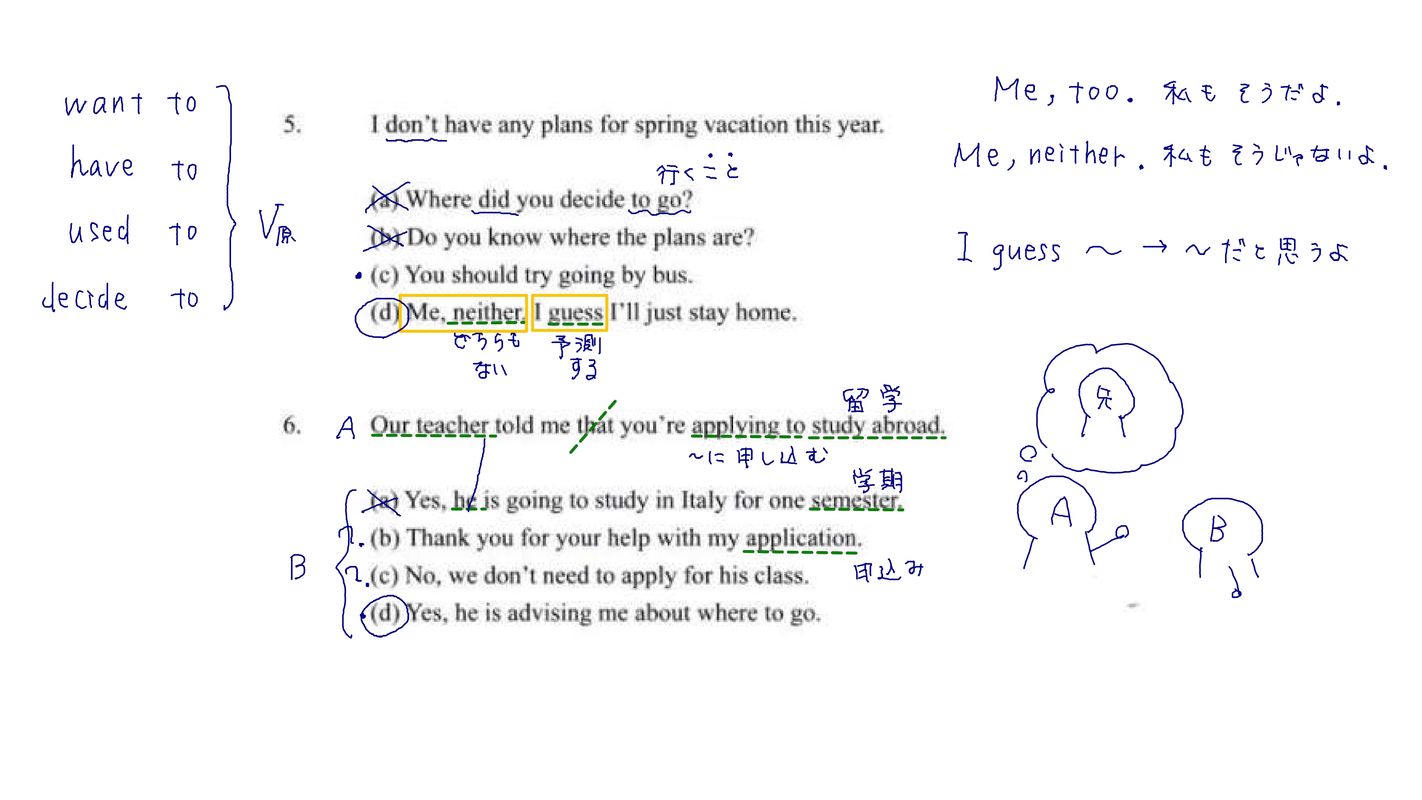 want to
have to
used to
decide to
V原
5. I don't have any plans for spring vacation this year.
行くこと
(a) Where did you decide to go?
(b) Do you know where the plans are?
(c) You should try going by bus.
(d) Me, neither. I guess I'll just stay home.
どちらもない
予測する
Me, too. 私もそうだよ.
Me, neither. 私もそうじゃないよ.
I guess ～ → ～だと思うよ
留学
6. A Our teacher told me that you're applying to study abroad.
～に申し込む
学期
B
(a) Yes, he is going to study in Italy for one semester.
(b) Thank you for your help with my application.
(c) No, we don't need to apply for his class.
申込み
(d) Yes, he is advising me about where to go.
兄
A
B